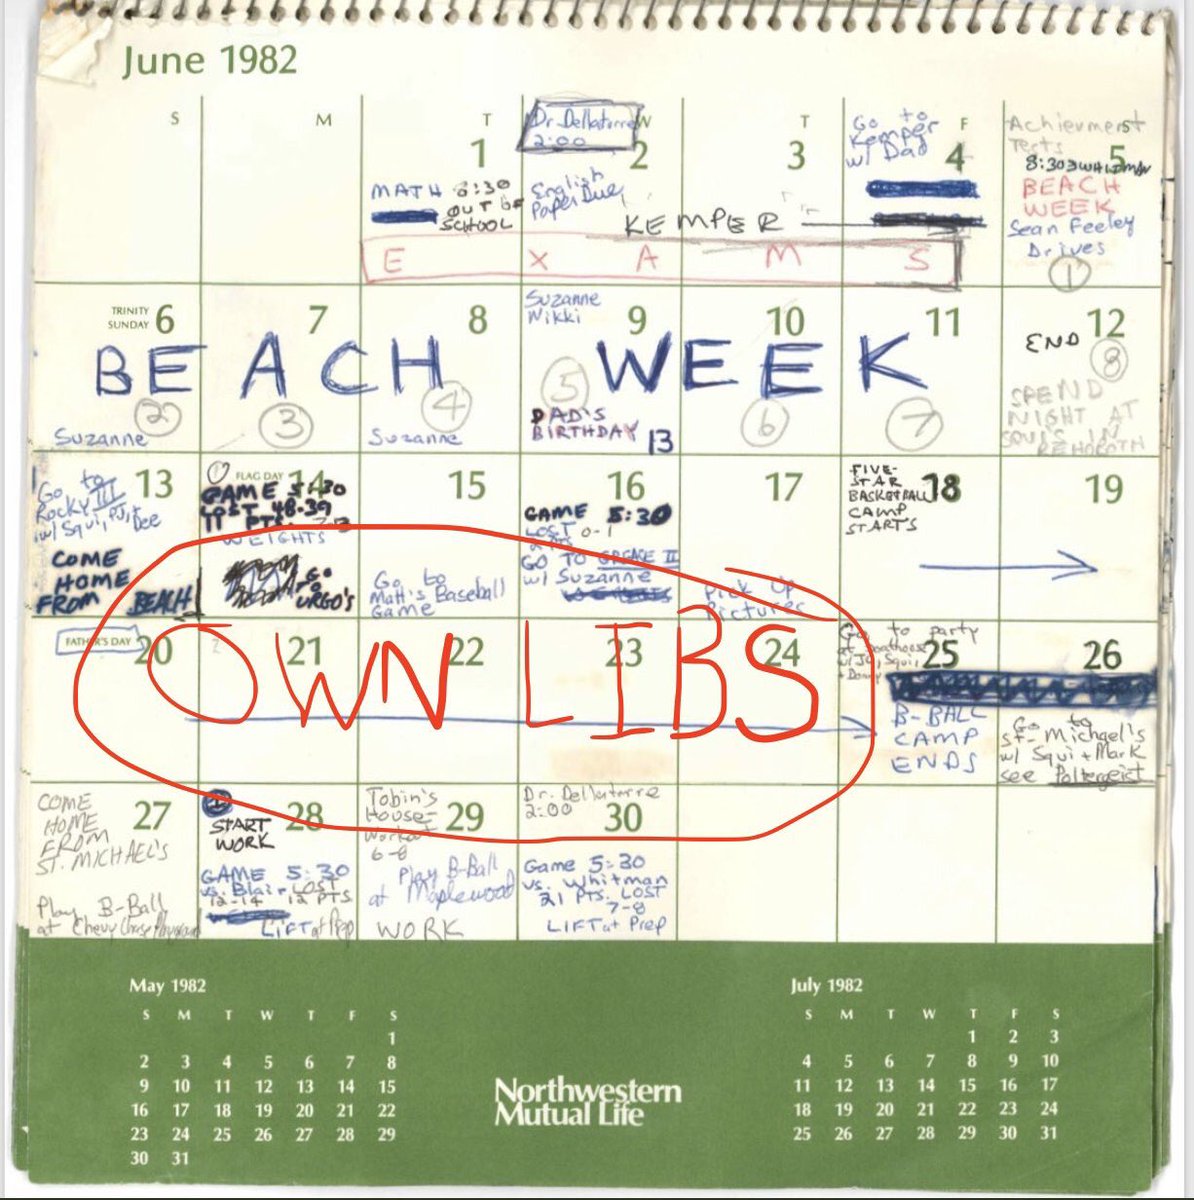 June 1982
S M T W T F S
1
MATH 8:30
OUT OF
SCHOOL
Dr. Dellatorre
2:00
2
English
Paper Due
3
KEMPER
Go to
Kemper
w/ Dad
4
Achievment
Tests
5
8:30 WHITMAN
BEACH
WEEK
Sean Feeley
Drives
1
E X A M S
TRINITY
SUNDAY 6
2
Suzanne
7
3
8
4
Suzanne
Suzanne
Nikki
9
5
DAD'S
BIRTHDAY
13
10
6
11
7
12
END
8
SPEND
NIGHT AT
SQUI'S IN
REHOBOTH
BEACH WEEK
13
Go to
Rocky III
w/ Squi, PJ,
Dee
COME
HOME
FROM BEACH
FLAG DAY 14
GAME 5:30
LOST 48-39
11 PTS.
WEIGHTS
GO
TO
URGO'S
15
Go to
Matt's Baseball
Game
16
GAME 5:30
LOST 0-1
GO TO GREASE II
w/ Suzanne
17
Pick Up
Pictures
FIVE-
STAR
BASKETBALL
CAMP
STARTS
18
19
FATHER'S DAY
20
21
22
23
24
OWN LIBS
Go to party
at boathouse
w/ Squi,
+ Donny
25
B-BALL
CAMP
ENDS
26
Go to
St. Michael's
w/ Squi + Mark
see Poltergeist
27
COME
HOME
FROM
ST. MICHAEL'S
Play B-Ball
at Chevy Chase Playground
28
START
WORK
GAME 5:30
vs. Blair LOST
12-14 12 PTS
LIFT at Prep
Tobin's
House-
Workout
6-8
29
Play B-Ball
at Maplewood
WORK
Dr. Dellatorre
2:00
30
Game 5:30
vs. Whitman
21 PTS. LOST
7-8
LIFT at Prep
May 1982
S M T W T F S
1
2 3 4 5 6 7 8
9 10 11 12 13 14 15
16 17 18 19 20 21 22
23 24 25 26 27 28 29
30 31
Northwestern
Mutual Life
July 1982
S M T W T F S
1 2 3
4 5 6 7 8 9 10
11 12 13 14 15 16 17
18 19 20 21 22 23 24
25 26 27 28 29 30 31